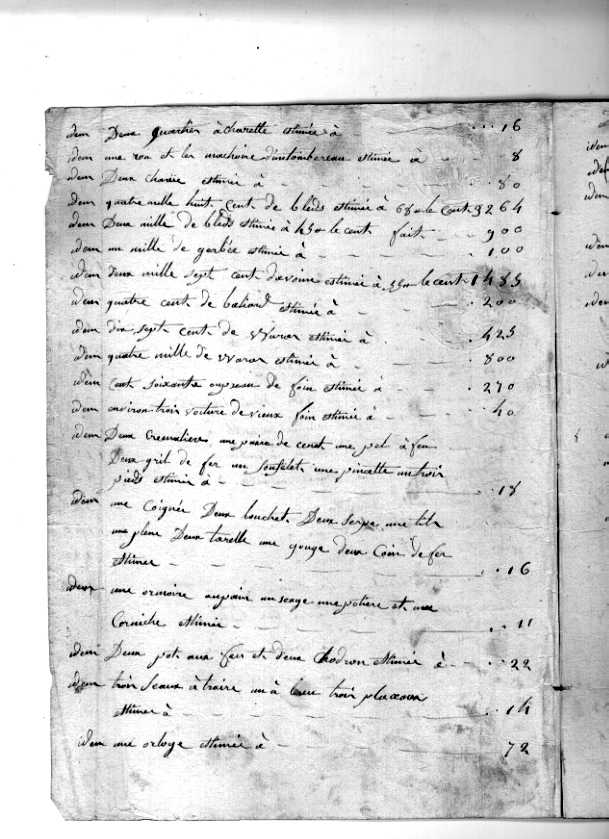 idem Deux quartier à charette estimée à 16
idem une roa et les machoire d'un tombereau estimée à 8
idem Deux charie estimée à 80
idem quatre mille huit cent de bleds estimée à 68 le cent 3264
idem Deux mille de bleds estimée à 45 le cent fait 900
idem un mille de gerbée estimée à 100
idem Deux mille sept cent d'avoine estimée à le cent 1485
idem quatre cent de estimée à 200
idem dix sept cent de warat estimée à 425
idem quatre mille de warat estimée à 800
idem Cent soixante de foin estimée à 270
idem environ trois voiture de vieux foin estimée à 40
idem Deux cremaliere une paire de une pel à feu
Deux gril de fer un souflet une pincette un trois
pieds estimée à 18
idem une Coignée Deux louchet Deux serpe une
une plene Deux tarelle une gouge deux Coin de fer
estimer 16
idem une ormoire une et une
Corniche estimée 11
idem Deux pot aux feu et deux Chodron estimée à 22
idem trois seaux à traire un à trois
estimer à 14
idem une orloge estimée à 72